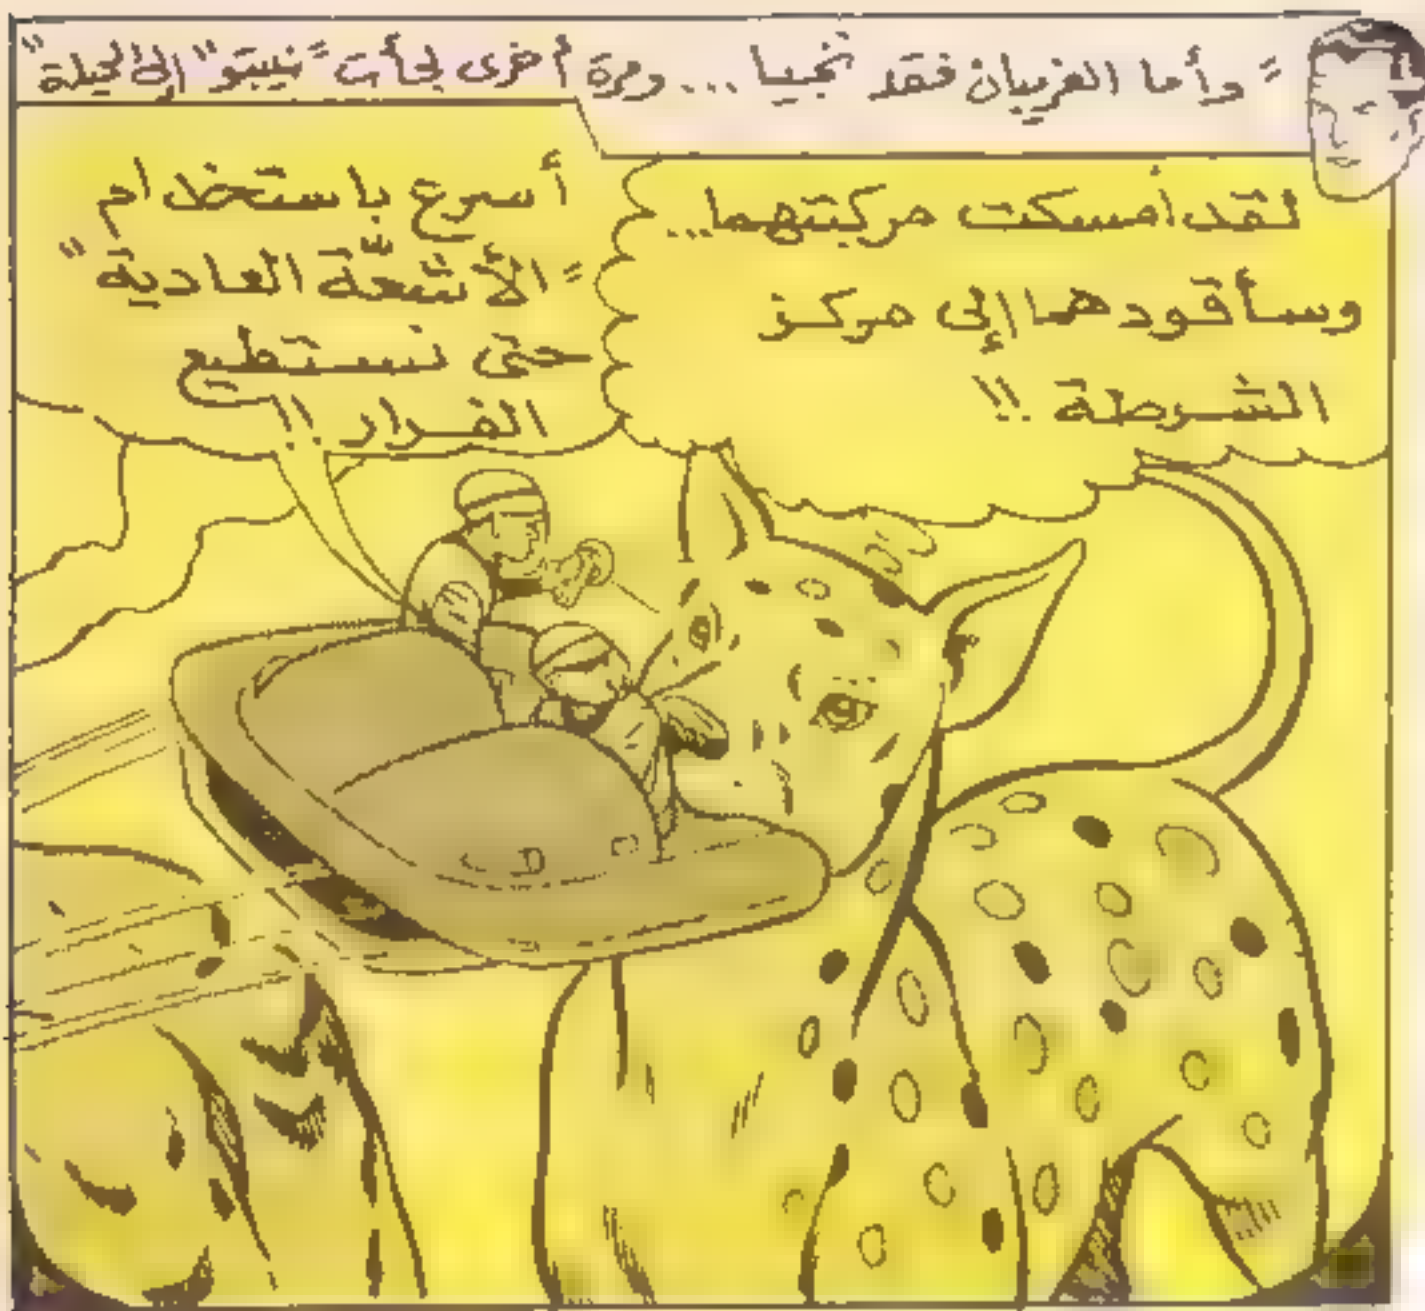 "وأما الغريبان فقد نجيا ... ومرة أخرى لجأت "نيبتو" إلى الحيلة"
لقد أمسكت مركبتهما...
وسأقودهما إلى مركز
الشرطة !!
أسرع باستخدام
"الأشعّة العادية"
حتى نستطيع
الفرار !!